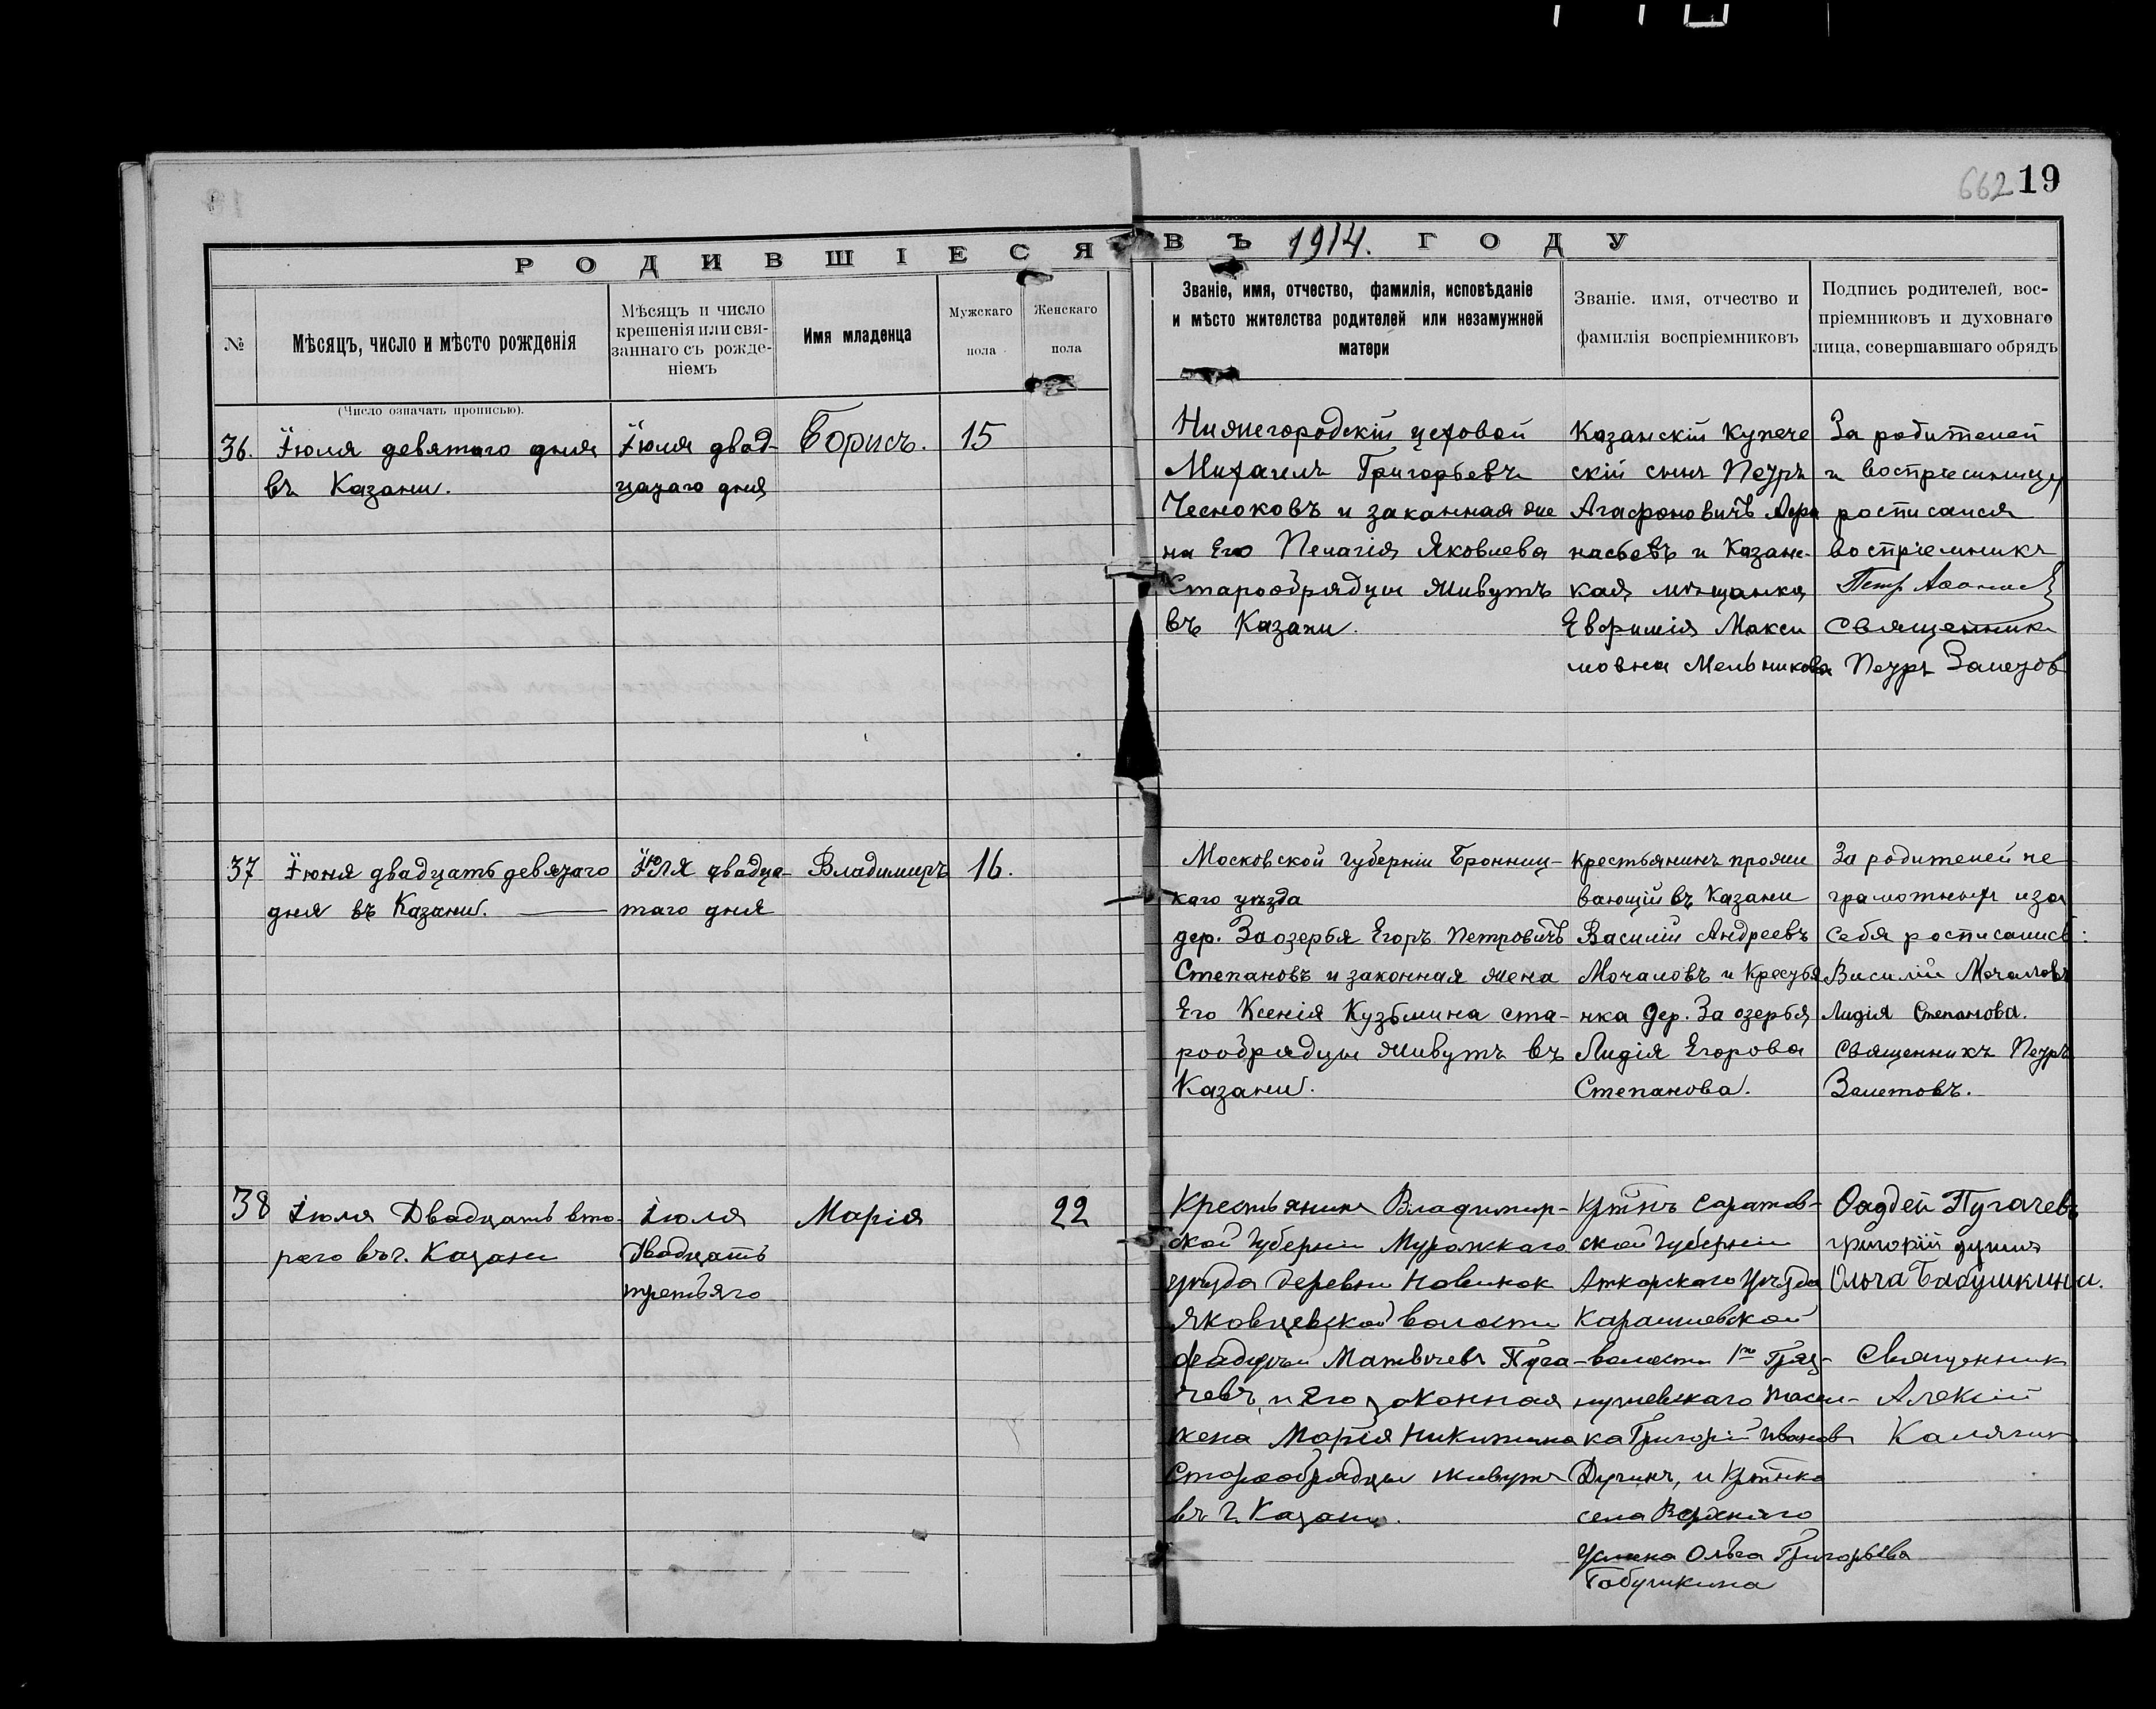 662 19
РОДИВШІЕСЯ ВЪ 1914. ГОДУ
№
Мѣсяцъ, число и мѣсто рожденія
Мѣсяцъ и число
крещенія или свя-
заннаго съ рожде-
ніемъ
Имя младенца
Мужскаго
пола
Женскаго
пола
Званіе, имя, отчество, фамилія, исповѣданіе
и мѣсто жителства родителей или незамужней
матери
Званіе. имя, отчество и
фамилія воспріемниковъ
Подпись родителей, вос-
пріемниковъ и духовнаго
лица, совершавшаго обрядъ
(Число означать прописью).
36.
Іюля девятаго дня
въ Казани.
Іюля двад-
цатаго дня
Борисъ.
15
Нижегородскій цеховой
Михаилъ Григорьевъ
Чесноковъ и законная же
на Его Пелагія Яковлева
Старообрядцы живутъ
въ Казани.
Казанскій Купече
скій сынъ Петръ
Агафоновичъ Афа
насьевъ и Казанс-
кая мѣщанка
Евфимія Макси
мовна Мельникова
За родителей
и воспріемницу
росписался
воспріемникъ
Петр
Священникъ
Петръ Залетов
37
Іюня двадцать девятаго
дня въ Казани.
Іюля двадца-
таго дня
Владимиръ
16.
Московской губерніи Бронниц-
каго уѣзда
дер. Заозерья Егоръ Петровичъ
Степановъ и законная жена
Его Ксенія Кузьмина ста-
рообрядцы живутъ въ
Казани.
Крестьянинъ прожи
вающій въ Казани
Василій Андреевъ
Мочаловъ и Крестья
нка дер. За озерья
Лидія Егорова
Степанова.
За родителей не
грамотныхъ и за
себя росписались:
Василій Мочаловъ
Лидія Степанова.
Священникъ Петръ
Залетовъ.
38
Іюля Двадцать вто-
раго въ г. Казани
Іюля
Двадцать
третьяго
Марія
22
Крестьянинъ Владимир-
ской Губерніи Муромскаго
уѣзда деревни Новинок
Яковцевской волости
Фадѣй Матвѣевъ Пуга-
чевъ, и Его законная
жена Марія Никитина
Старообрядцы живутъ
въ г. Казани.
Крт҃нъ Саратов-
ской Губерніи
Аткарскаго Уѣзда
волости 1го
ка Григорій Ивановъ
и Крт҃нка
села Верхняго
Услона Ольга Григорьева
Бабушкина
Фаддей Пугачевъ
григорій
Ольга Бабушкина.
Священникъ
Алексій
Калягин